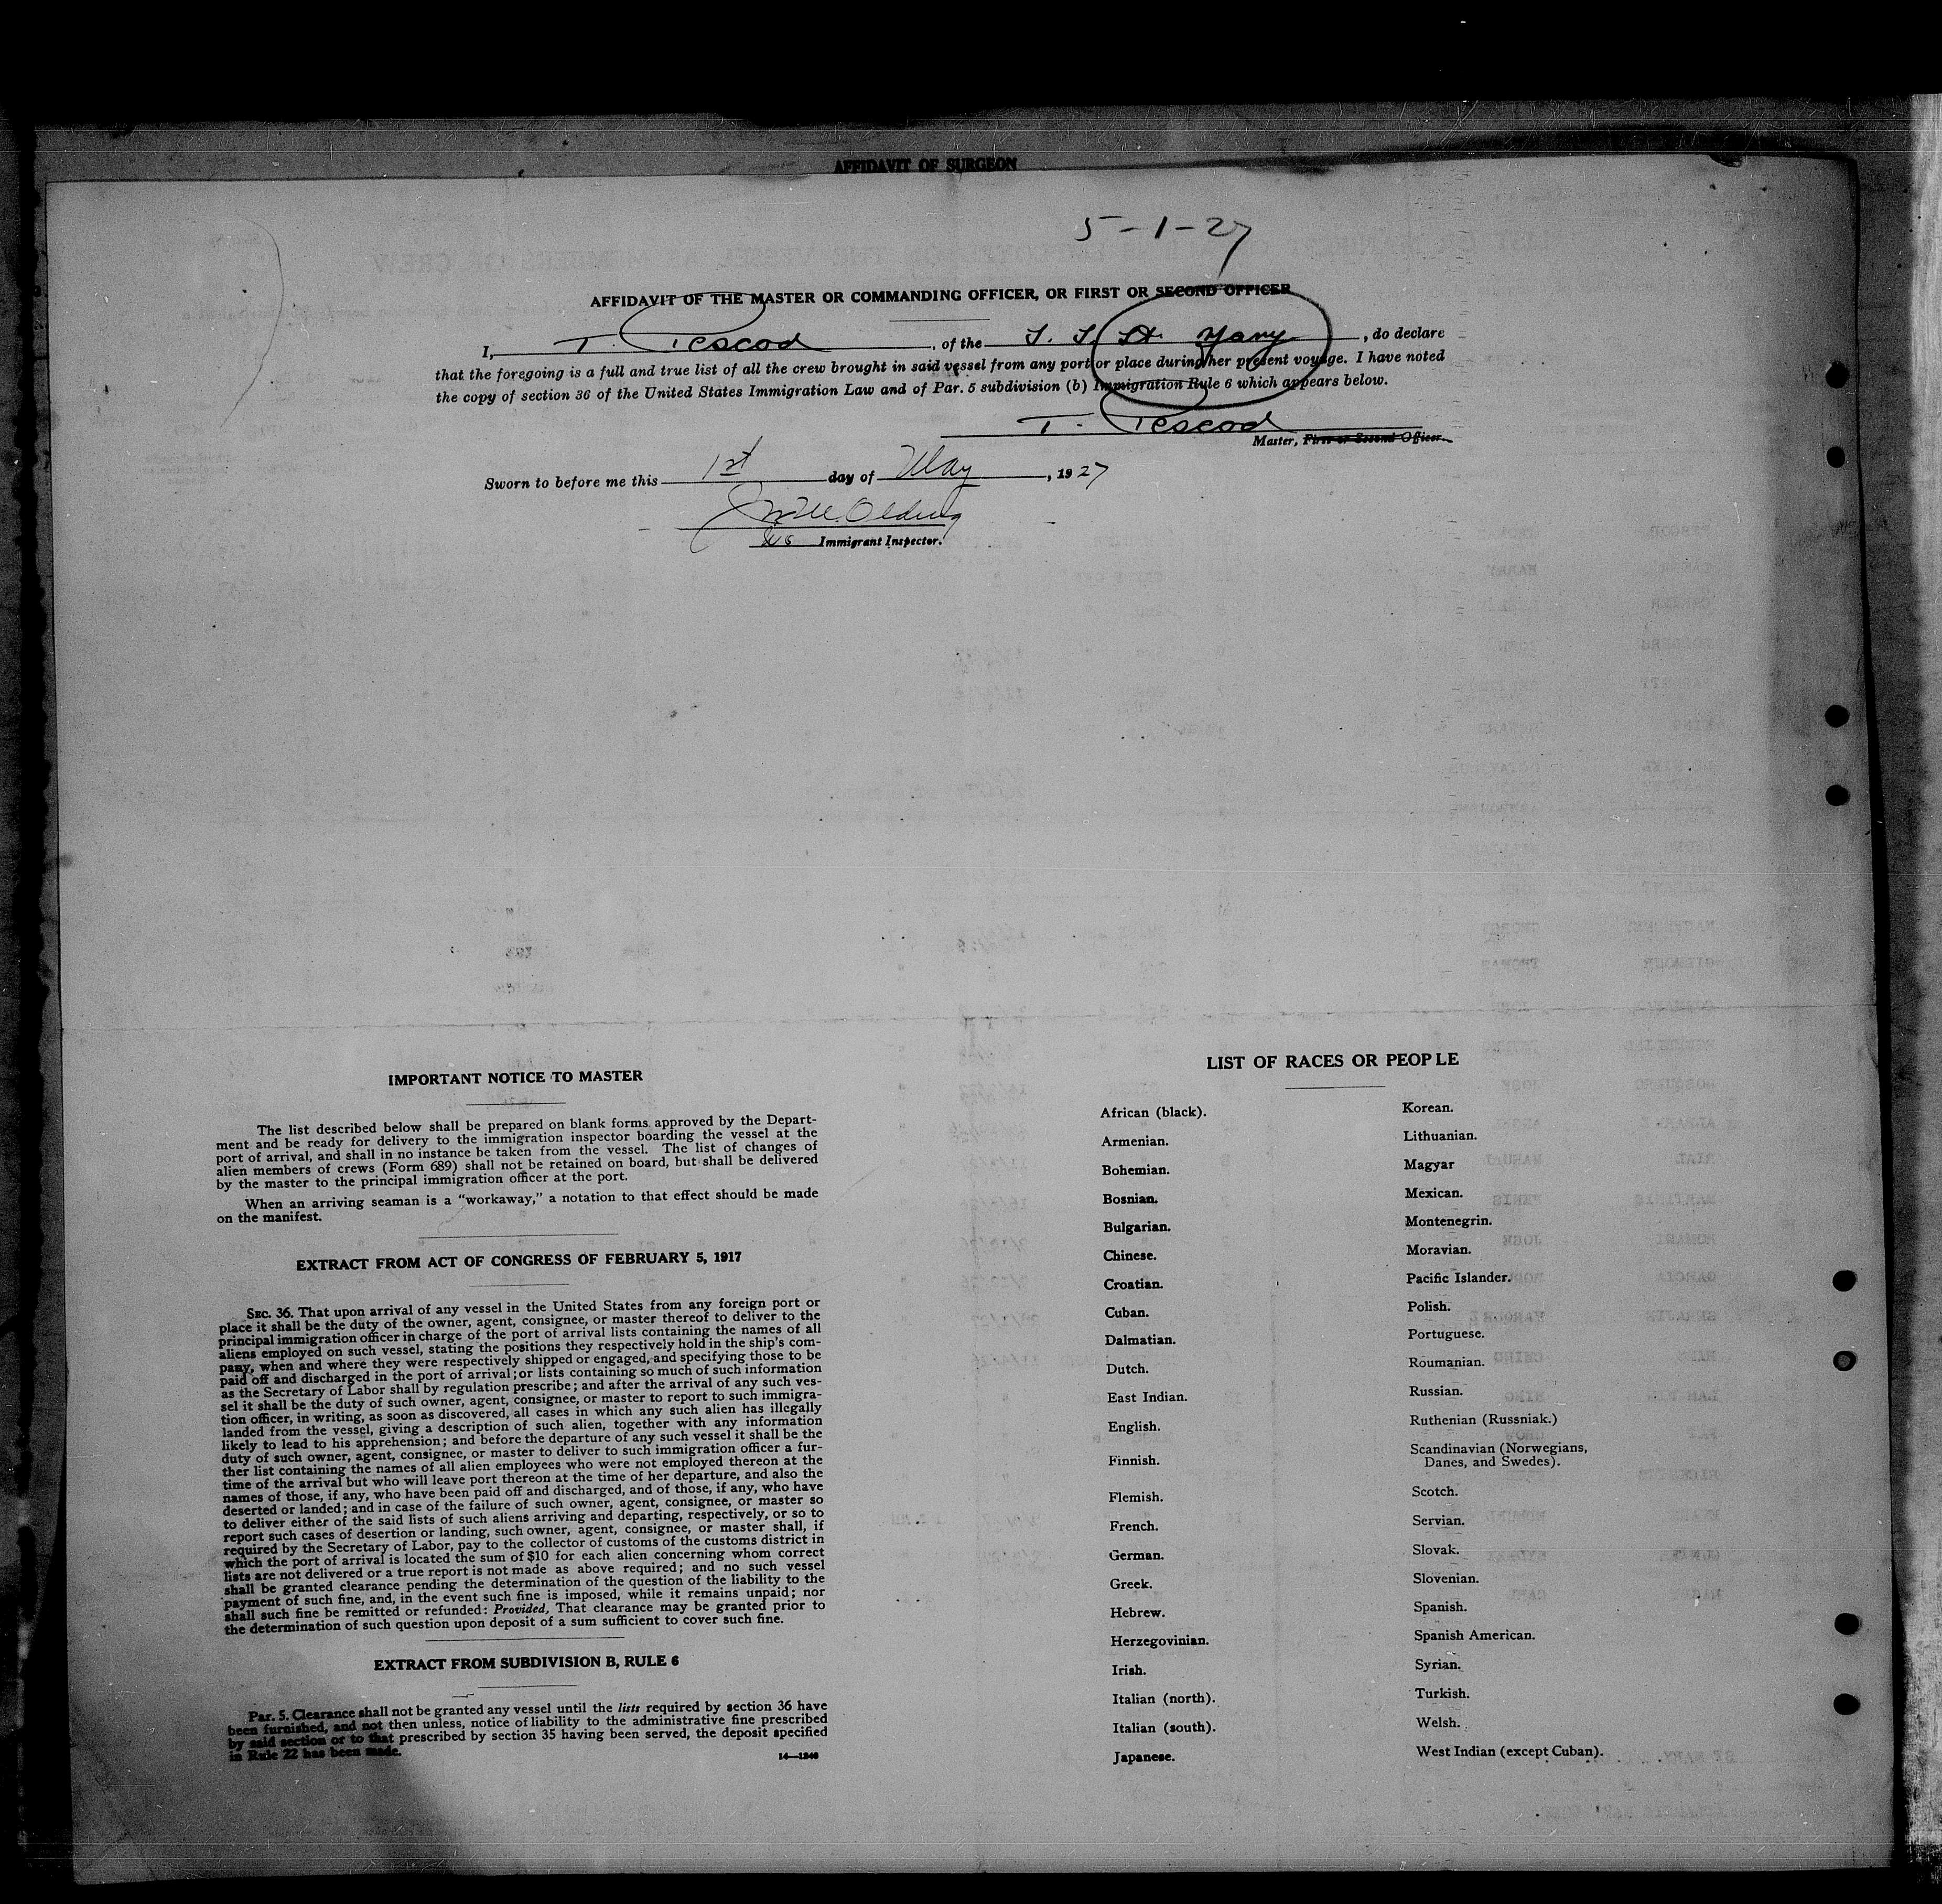 AFFIDAVIT OF SURGEON
5-1-27
AFFIDAVIT OF THE MASTER OR COMMANDING OFFICER, OR FIRST OR SECOND OFFICER
I, T. Pescod, of the S. S. St. Mary, do declare
that the foregoing is a full and true list of all the crew brought in said vessel from any port or place during her present voyage. I have noted
the copy of section 36 of the United States Immigration Law and of Par. 5 subdivision (b) Immigration Rule 6 which appears below.
T. Pescod
Master, First or Second Officer.
Sworn to before me this 1st day of May, 1927
Immigrant Inspector.
IMPORTANT NOTICE TO MASTER
The list described below shall be prepared on blank forms approved by the Depart-
ment and be ready for delivery to the immigration inspector boarding the vessel at the
port of arrival, and shall in no instance be taken from the vessel. The list of changes of
alien members of crews (Form 689) shall not be retained on board, but shall be delivered
by the master to the principal immigration officer at the port.
When an arriving seaman is a “workaway,” a notation to that effect should be made
on the manifest.
EXTRACT FROM ACT OF CONGRESS OF FEBRUARY 5, 1917
SEC. 36. That upon arrival of any vessel in the United States from any foreign port or
place it shall be the duty of the owner, agent, consignee, or master thereof to deliver to the
principal immigration officer in charge of the port of arrival lists containing the names of all
aliens employed on such vessel, stating the positions they respectively hold in the ship's com-
pany, when and where they were respectively shipped or engaged, and specifying those to be
paid off and discharged in the port of arrival; or lists containing so much of such information
as the Secretary of Labor shall by regulation prescribe; and after the arrival of any such ves-
sel it shall be the duty of such owner, agent, consignee, or master to report to such immigra-
tion officer, in writing, as soon as discovered, all cases in which any such alien has illegally
landed from the vessel, giving a description of such alien, together with any information
likely to lead to his apprehension; and before the departure of any such vessel it shall be the
duty of such owner, agent, consignee, or master to deliver to such immigration officer a fur-
ther list containing the names of all alien employees who were not employed thereon at the
time of the arrival but who will leave port thereon at the time of her departure, and also the
names of those, if any, who have been paid off and discharged, and of those, if any, who have
deserted or landed; and in case of the failure of such owner, agent, consignee, or master so
to deliver either of the said lists of such aliens arriving and departing, respectively, or so to
report such cases of desertion or landing, such owner, agent, consignee, or master shall, if
required by the Secretary of Labor, pay to the collector of customs of the customs district in
which the port of arrival is located the sum of $10 for each alien concerning whom correct
lists are not delivered or a true report is not made as above required; and no such vessel
shall be granted clearance pending the determination of the question of the liability to the
payment of such fine, and, in the event such fine is imposed, while it remains unpaid; nor
shall such fine be remitted or refunded: Provided, That clearance may be granted prior to
the determination of such question upon deposit of a sum sufficient to cover such fine.
EXTRACT FROM SUBDIVISION B, RULE 6
Par. 5. Clearance shall not be granted any vessel until the lists required by section 36 have
been furnished, and not then unless, notice of liability to the administrative fine prescribed
by said section or to that prescribed by section 35 having been served, the deposit specified
in Rule 22 has been made.
14—1240
LIST OF RACES OR PEOPLE
African (black).
Armenian.
Bohemian.
Bosnian.
Bulgarian.
Chinese.
Croatian.
Cuban.
Dalmatian.
Dutch.
East Indian.
English.
Finnish.
Flemish.
French.
German.
Greek.
Hebrew.
Herzegovinian.
Irish.
Italian (north).
Italian (south).
Japanese.
Korean.
Lithuanian.
Magyar
Mexican.
Montenegrin.
Moravian.
Pacific Islander.
Polish.
Portuguese.
Roumanian.
Russian.
Ruthenian (Russniak.)
Scandinavian (Norwegians,
Danes, and Swedes).
Scotch.
Servian.
Slovak.
Slovenian.
Spanish.
Spanish American.
Syrian.
Turkish.
Welsh.
West Indian (except Cuban).